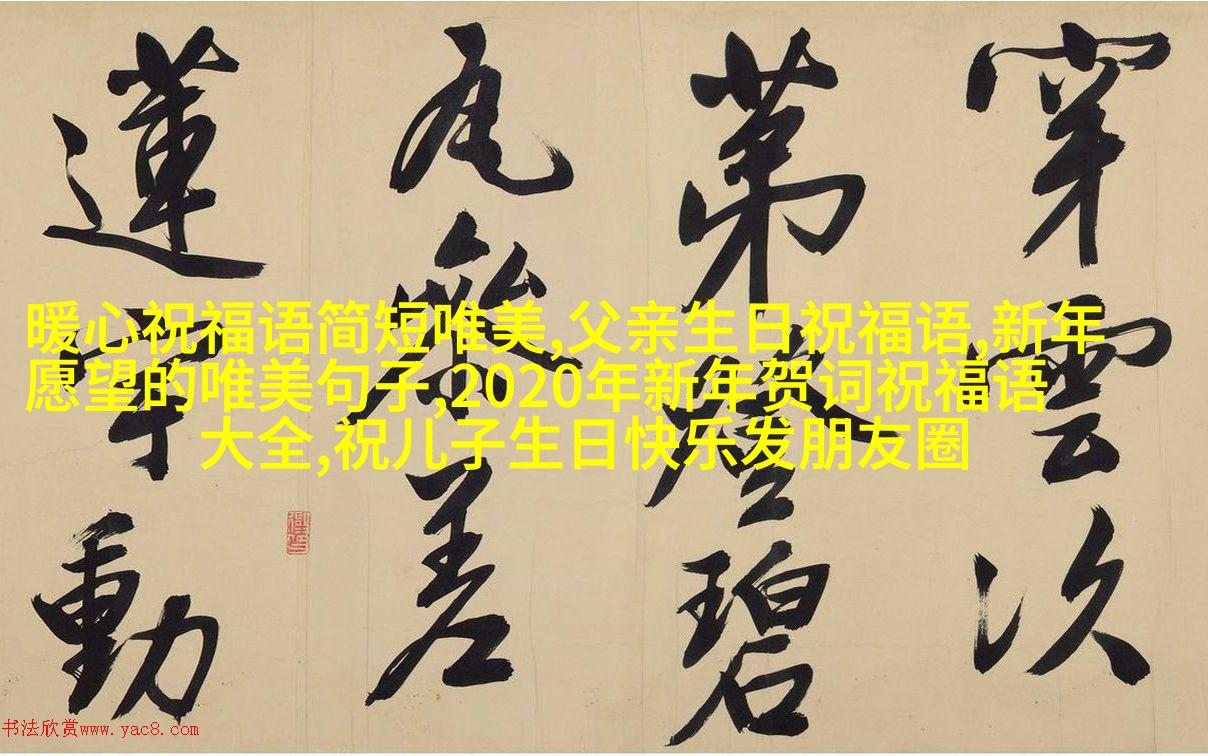 穿雲次
第碧
瓦參差
蓮宇動
暖心祝福语简短唯美,父亲生日祝福语,新年
愿望的唯美句子,2020年新年贺词祝福语
大全,祝儿子生日快乐发朋友圈
书法欣赏www.yac8.com